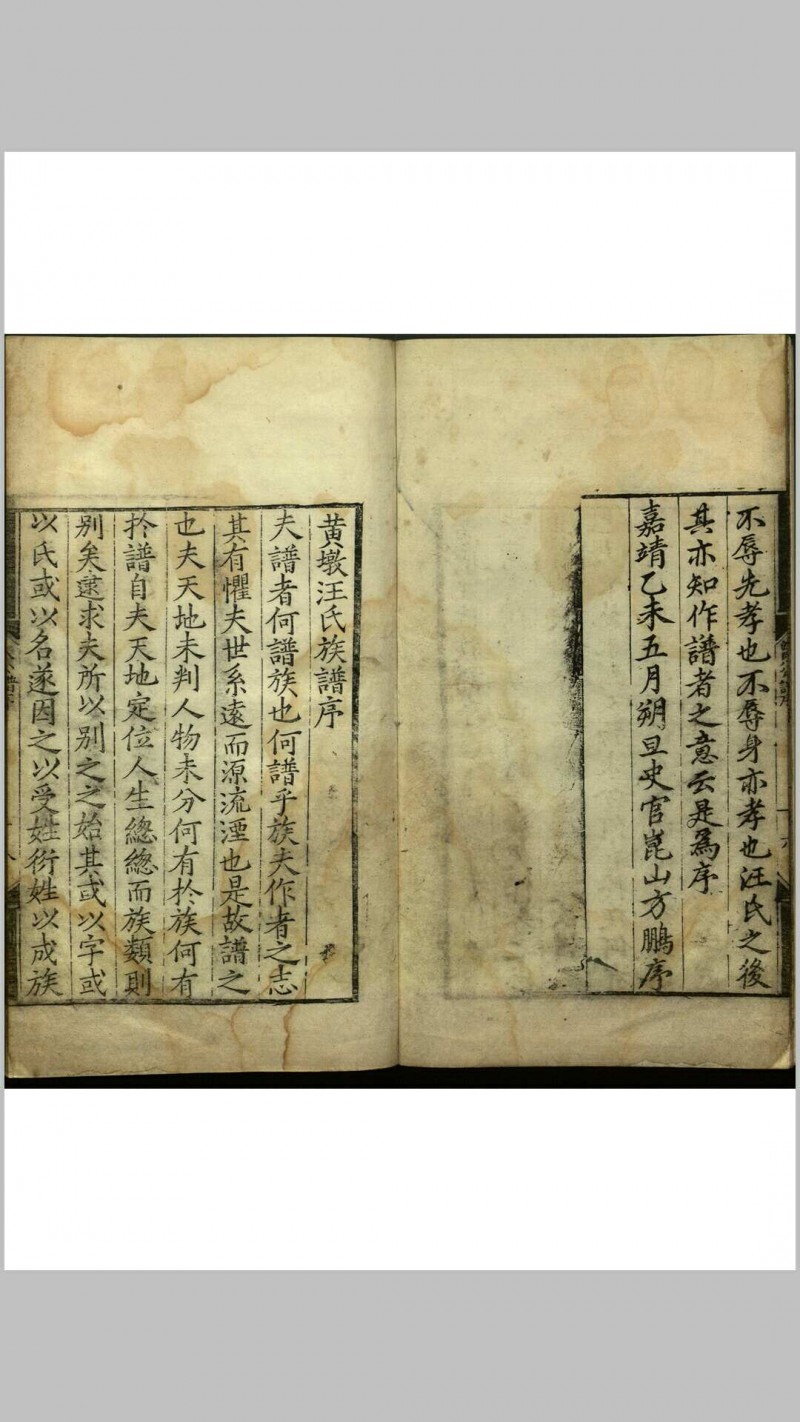 不辱先孝也不辱身亦孝也汪氏之後
其亦知作譜者之意云是為序
嘉靖乙未五月朔旦史官崑山方鵬序
黄墩汪氏族譜序
夫譜者何譜族也何譜乎族夫作者之志
其有懼夫世系逺而源流湮也是故譜之
也夫天地未判人物未分何有扵族何有
扵譜自夫天地定位人生總總而族類則
别矣逺求夫所以别之之始其或以字或
以氏或以名遂因之以受姓衍姓以成族